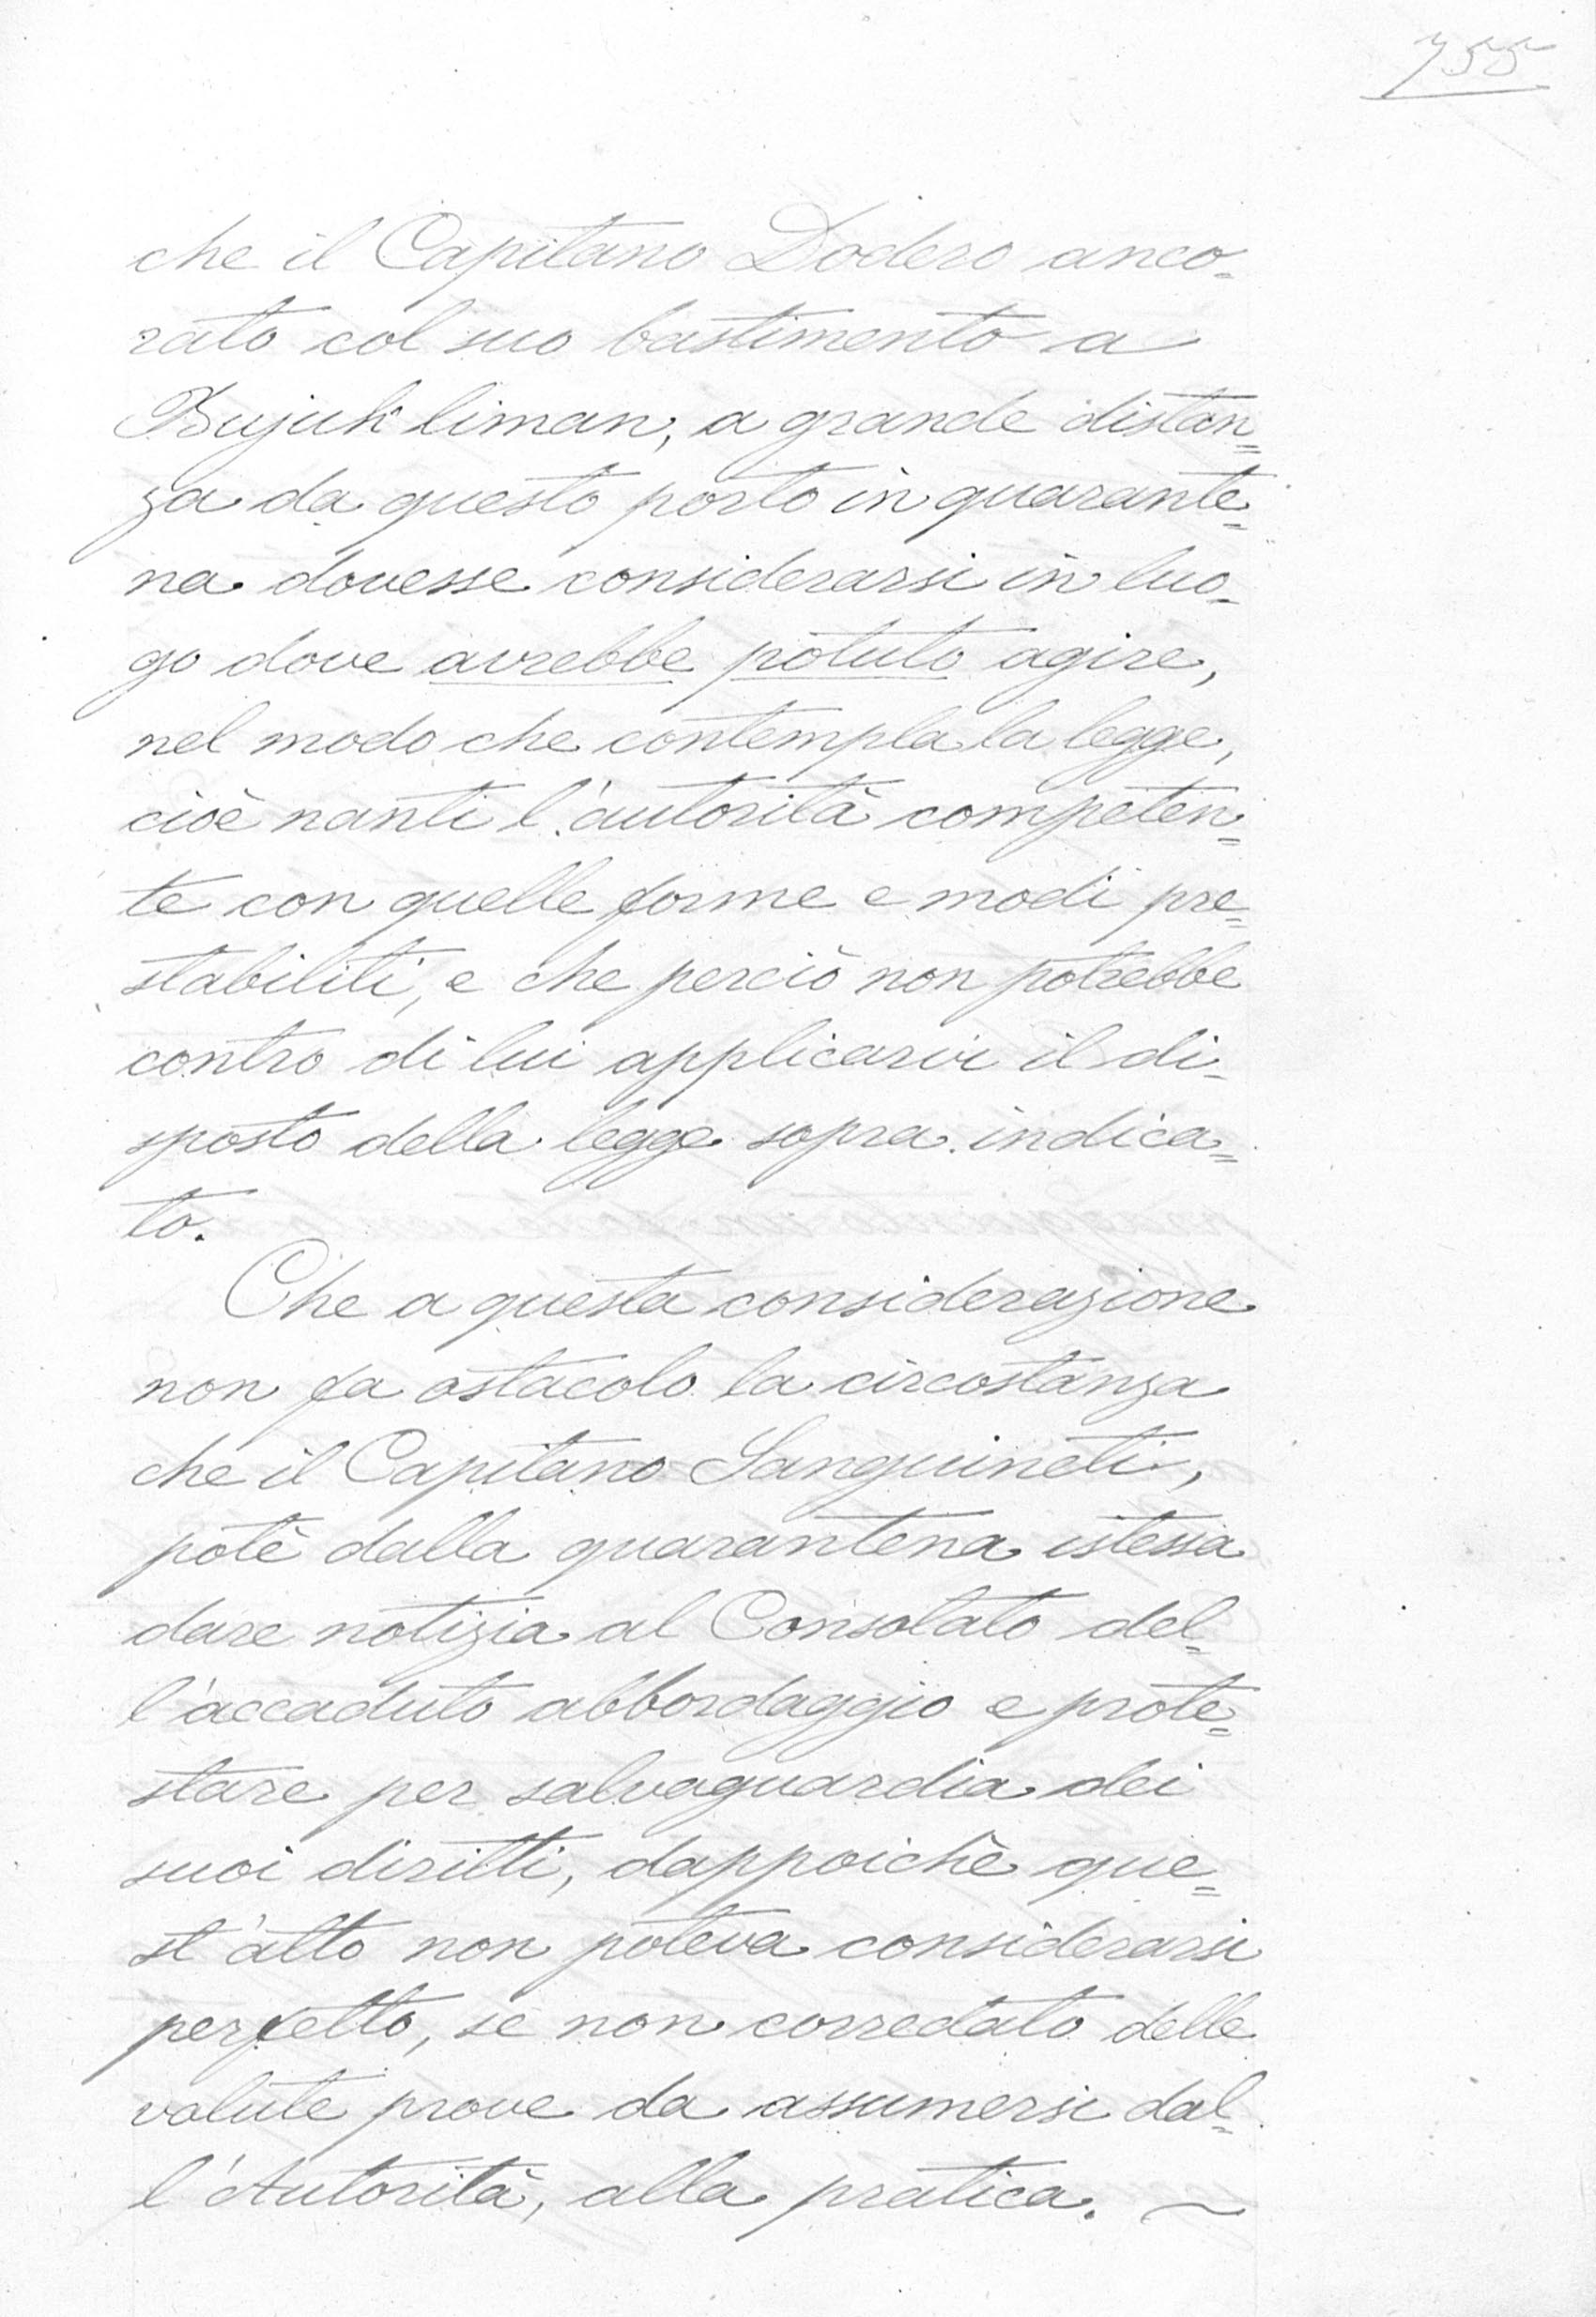 755
che il Capitano Dodero anco-
rato col suo bastimento a
Bujuk liman, a grande distan=
za da questo porto in quarante=
na dovesse considerarsi in luo-
go dove avrebbe potuto agire,
nel modo che contempla la legge,
cioè nanti l'autorità competen=
te con quelle forme e modi pre=
stabiliti, e che perciò non potrebbe
contro di lui applicarvi il di-
sposto della legge sopra indica=
to.
Che a questa considerazione
non fa ostacolo la circostanza
che il Capitano Sanguineti,
potè dalla quarantena istessa
dare notizia al Consolato del=
l'accaduto abbordaggio e prote=
stare per salvaguardia dei
suoi diritti, dappoichè que=
st'atto non poteva considerarsi
perfetto, se non corredato delle
volute prove da assumersi dal=
l'Autorità, alla pratica. ~